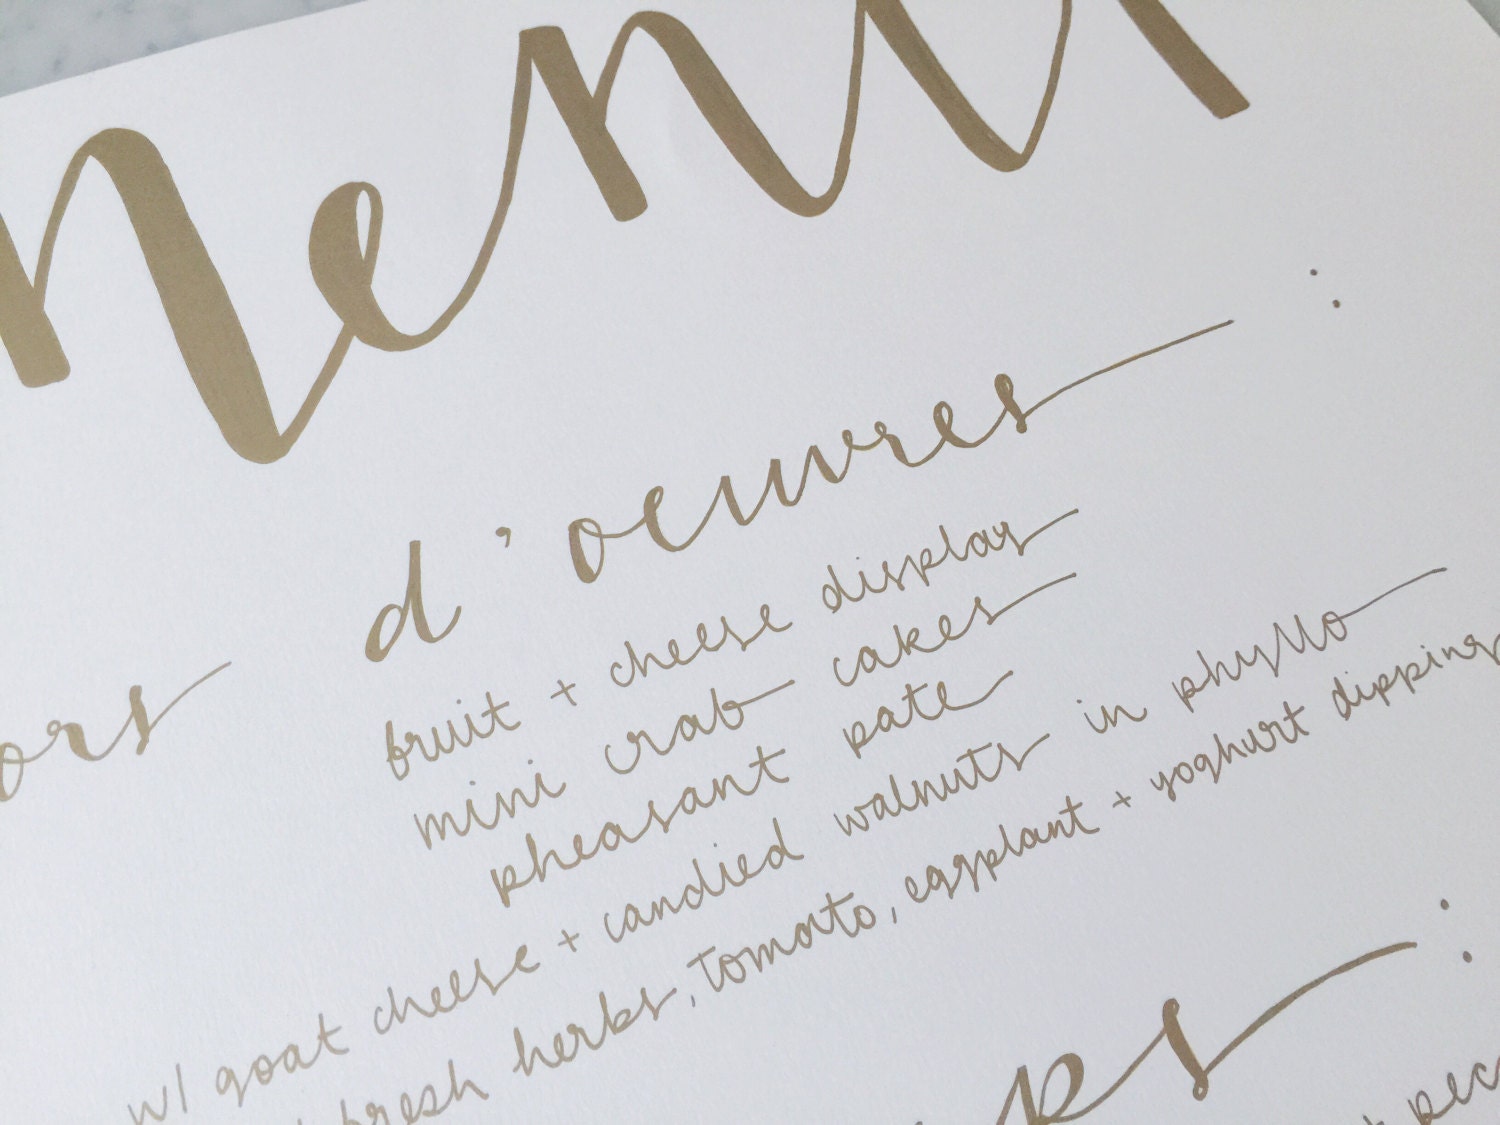 menu
ors d'oeuvres :
fruit + cheese display
mini crab cakes
pheasant pate
w/ goat cheese + candied walnuts in phyllo
fresh herbs, tomato, eggplant + yoghurt dipping
ps :
pec